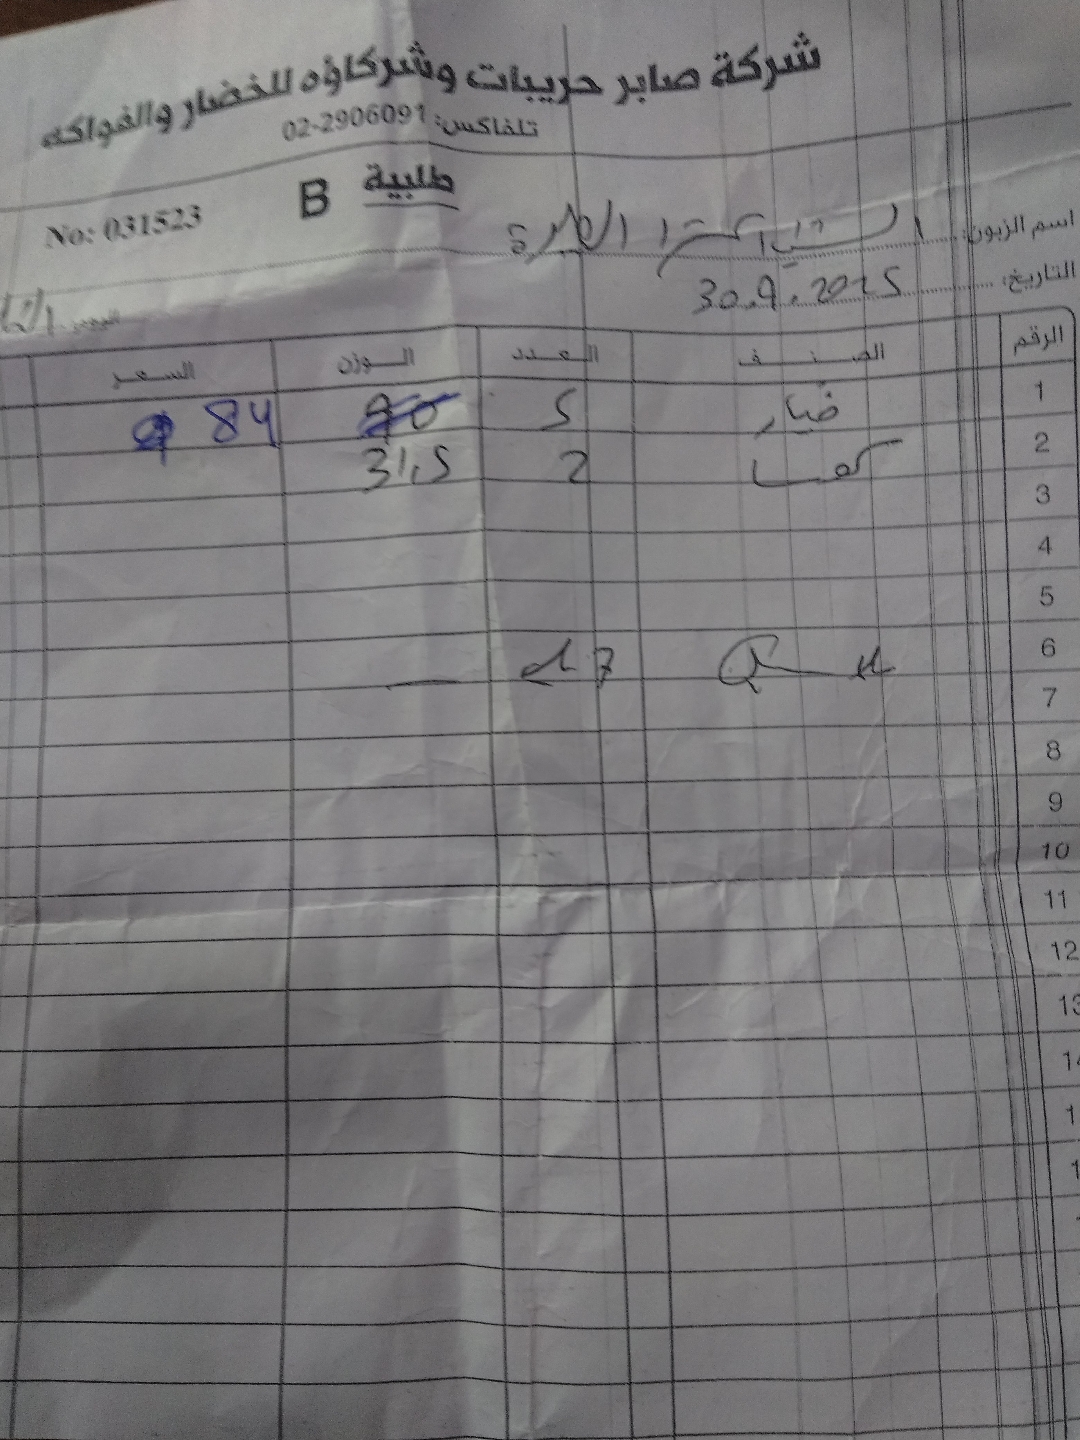 شركة صابر حريبات وشركاؤه للخضار والفواكه
تلفاكس: 02-2906091
طلبية B No: 031523
اسم الزبون:
التاريخ: 30.9.2025 اليوم
الرقم الصنف العدد الوزن السعر
1 خيار 5 84
2 كوسا 2 31,5
3
4
5
6 7
7
8
9
10
11
12
13